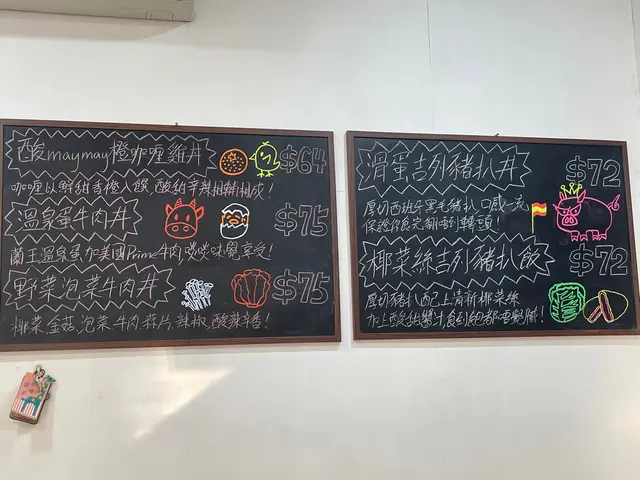 酸maymay橙咖喱雞丼 $64
咖喱以鮮甜香橙入饌,酸甜辛辣相輔相成!
溫泉蛋牛肉丼 $75
蘭王溫泉蛋加美國Prime牛肉,啖啖味覺享受!
野菜泡菜牛肉丼 $75
椰菜,金菇,泡菜,牛肉,蒜片,辣椒,酸辣辛香!
滑蛋吉列豬扒丼 $72
厚切西班牙黑毛豬扒,口感一流
保證你食完翻唔到轉頭!
椰菜絲吉列豬扒飯 $72
厚切豬扒配上清新椰菜絲
加上酸甜醬汁,食到